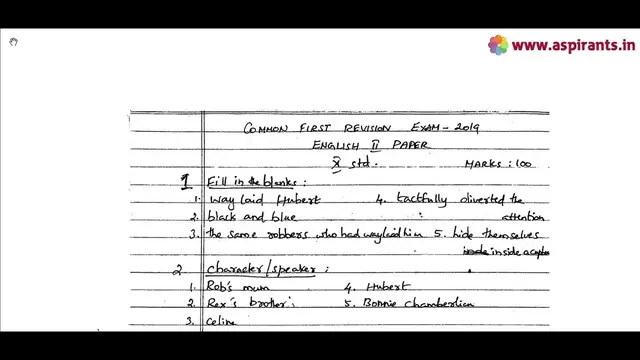 www.aspirants.in
COMMON FIRST REVISION EXAM - 2019
ENGLISH II PAPER
X std. MARKS : 100
1 Fill in the blanks :
1. way laid Hubert 4. tactfully diverted the
2. black and blue attention
3. the same robbers who had waylaid him 5. hide themselves
inside a
2. Character/speaker :
1. Rob's mum 4. Hubert
2. Rex's brother 5. Bonnie Chamberlian
3. Celine